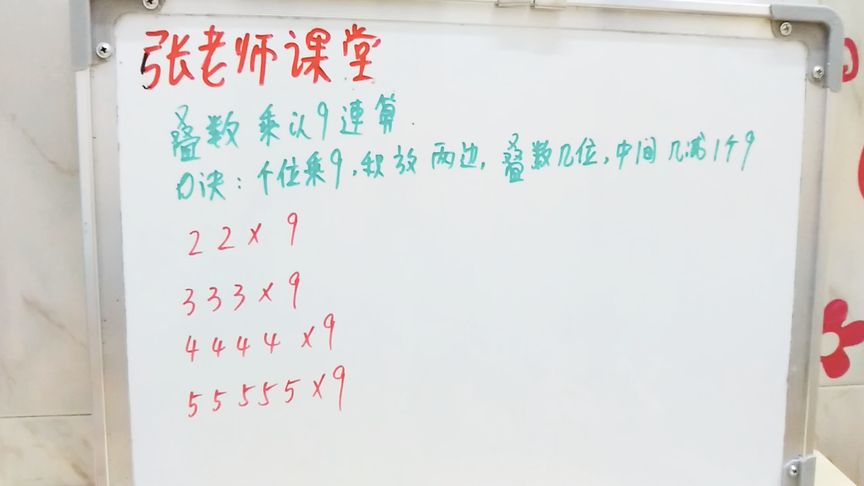 张老师课堂
叠数 乘以9連算.
口诀：个位乘9，积放两边，叠数几位，中间几减1个9
22×9
333×9
4444×9
55555×9